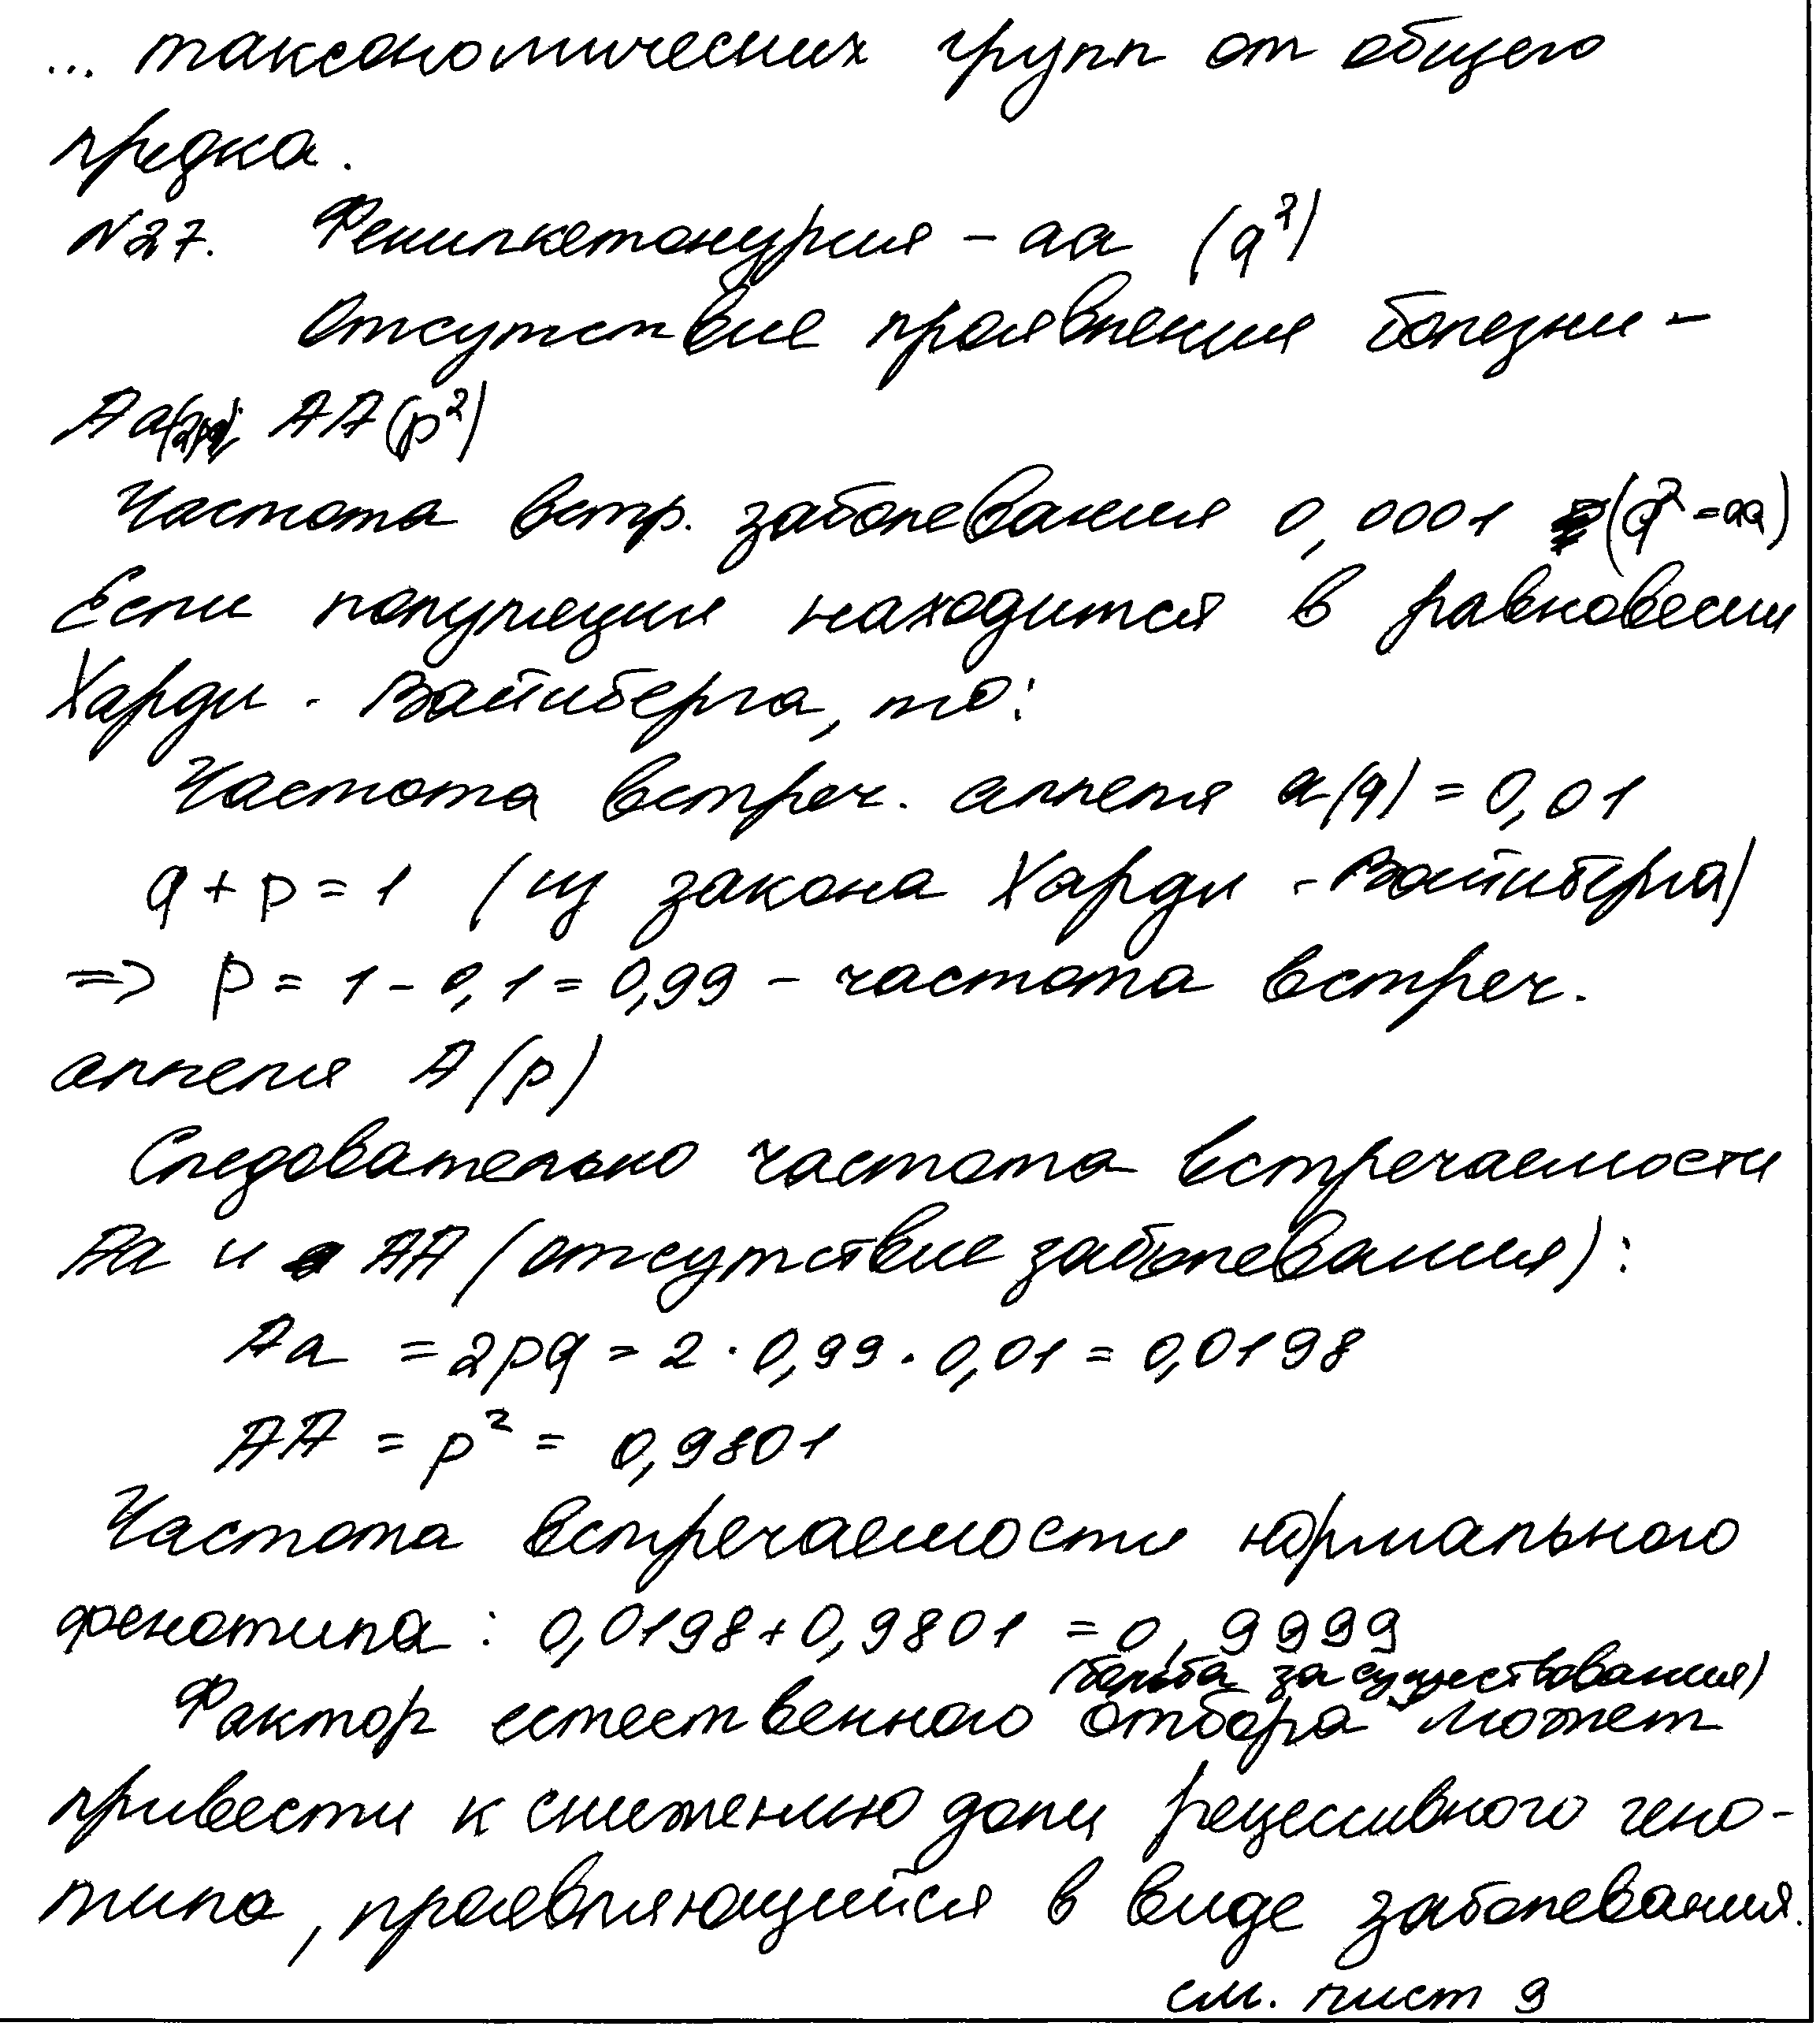 ... таксономических групп от общего
предка.
№27. Фенилкетонурия – аа (q²)
Отсутствие проявления болезни –
Аа(2pq); АА(p²)
Частота встр. заболевания 0,0001 (q²=аа)
Если популяция находится в равновесии
Харди - Вайнберга, то:
Частота встреч. аллеля а(q) = 0,01
q + p = 1 (из закона Харди - Вайнберга)
=> p = 1 - 0,1 = 0,99 – частота встреч.
аллеля А (p)
Следовательно частота встречаемости
Аа и АА (отсутствие заболевания):
Аа = 2pq = 2 · 0,99 · 0,01 = 0,0198
АА = p² = 0,9801
Частота встречаемости нормального
фенотипа: 0,0198+0,9801 = 0,9999
(борьба за существования)
Фактор естественного отбора может
привести к снижению доли рецессивного гено-
типа, проявляющийся в виде заболевания.
см. лист 9